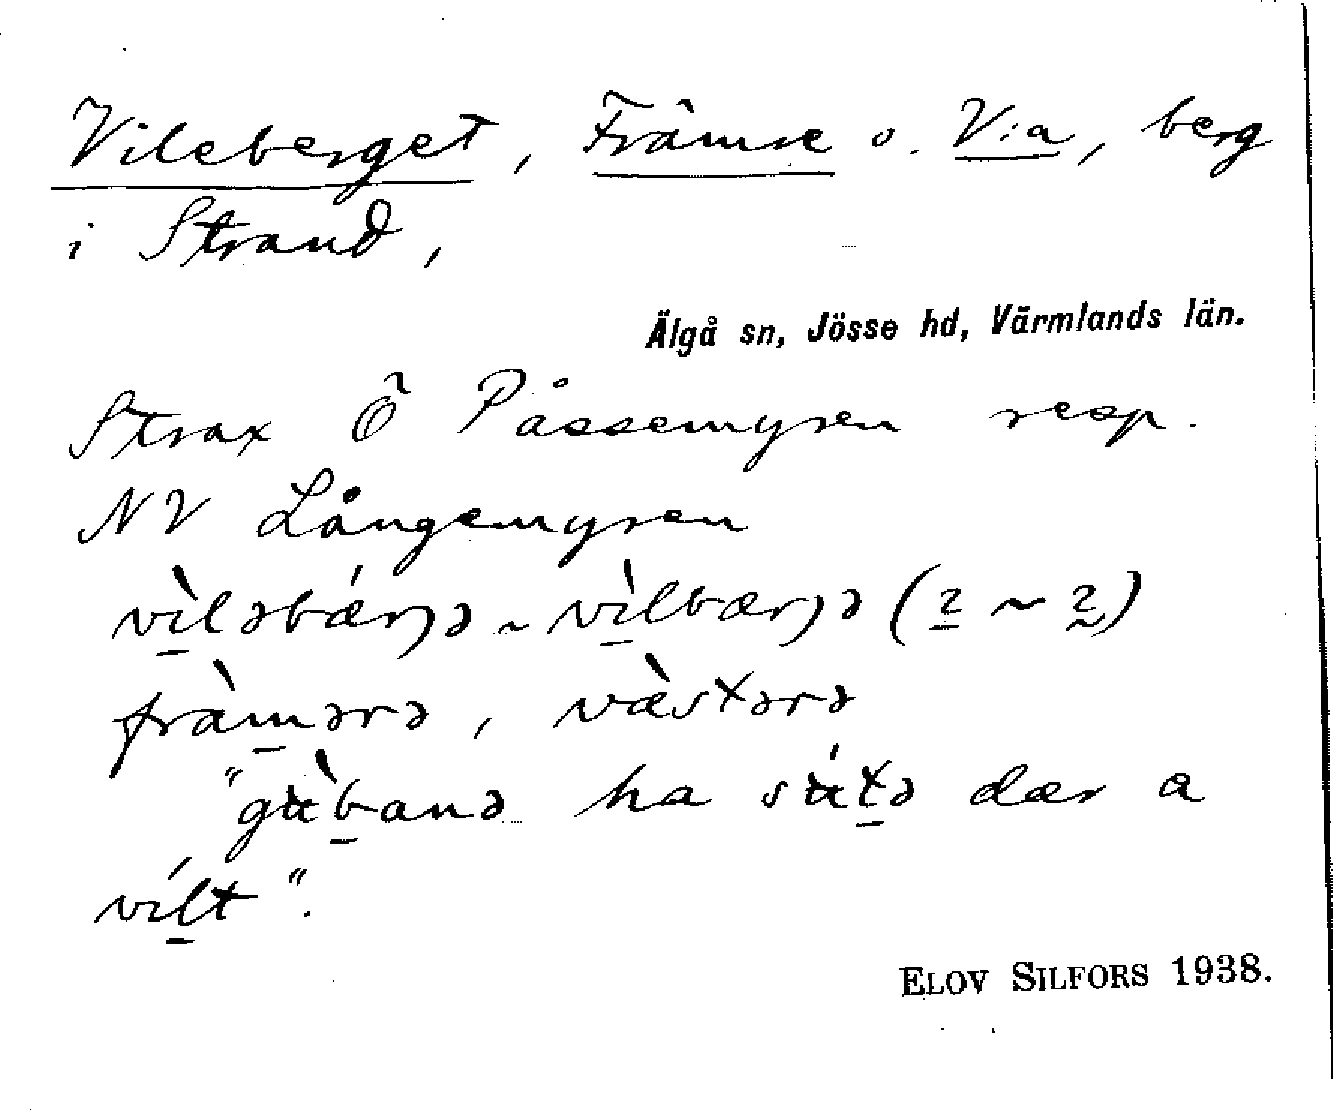 Vileberget, Främre o. V:a, berg
i Strand,
Älgå sn, Jösse hd, Värmlands län.
Strax Ö Påssemyren resp.
NV Långemyren
vìləbǽrjə ~ vìlbærjə (2 ~ 2)
fràmərə, væ̀stərə
"gùbanə ha sútə dær a
vílt".
ELOV SILFORS 1938.